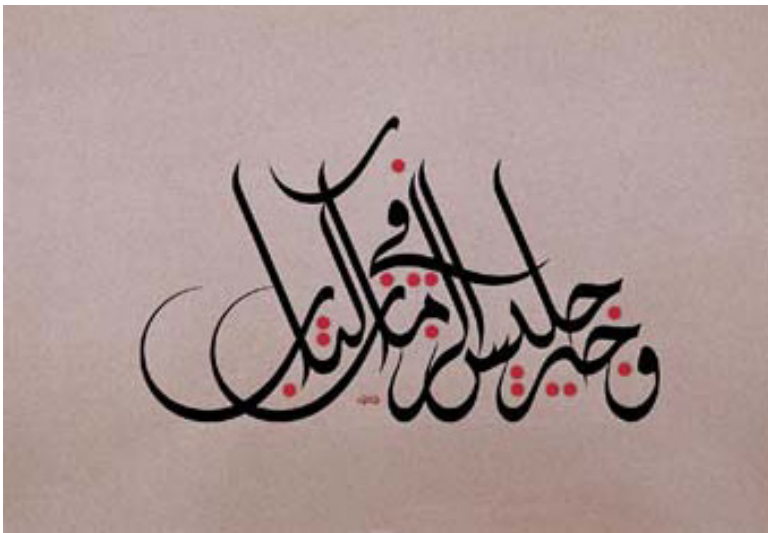 وخير جليس في الزمان كتاب